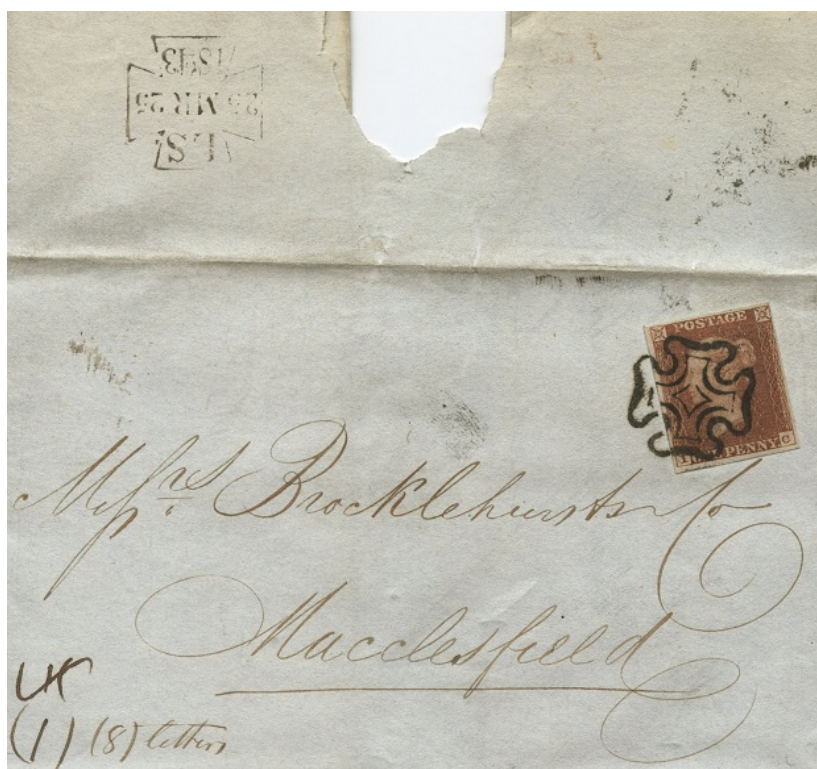 LS
25 MR 25
1843
POSTAGE
PENNY C
Messrs Brocklehursts & Co
Macclesfield
(1) (8) letters